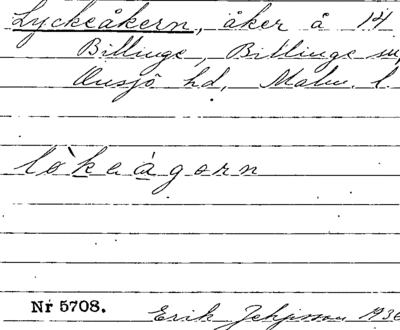 Lyckeåkern, åker å 14
Billinge, Billinge sn,
Onsjö hd, Malm. l.
lòkeàgorn
Nr 5708.
Erik 1936